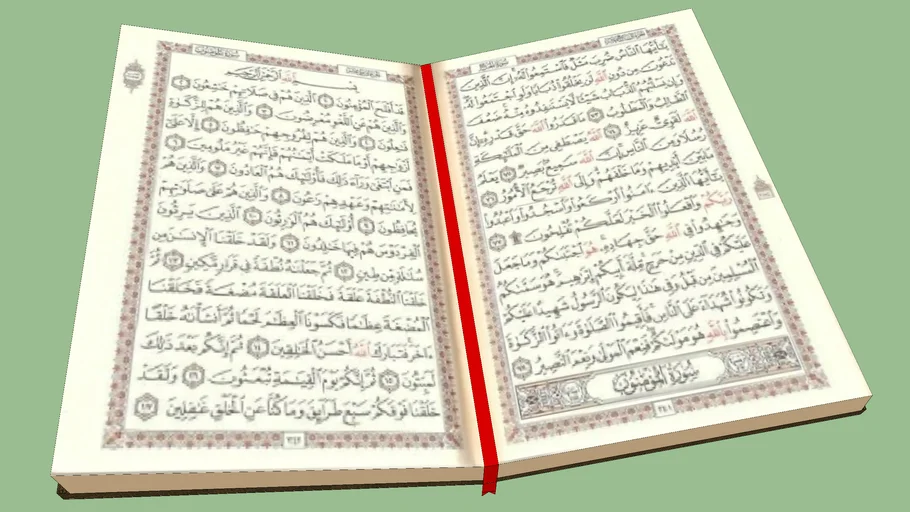 سُورَةُ الحَجِّ
الجُزْءُ السَّابِعَ عَشَرَ
يَٰٓأَيُّهَا ٱلنَّاسُ ضُرِبَ مَثَلٌ فَٱسْتَمِعُوا۟ لَهُۥٓ إِنَّ ٱلَّذِينَ
تَدْعُونَ مِن دُونِ ٱللَّهِ لَن يَخْلُقُوا۟ ذُبَابًا وَلَوِ ٱجْتَمَعُوا۟ لَهُۥ
وَإِن يَسْلُبْهُمُ ٱلذُّبَابُ شَيْـًٔا لَّا يَسْتَنقِذُوهُ مِنْهُ ضَعُفَ
ٱلطَّالِبُ وَٱلْمَطْلُوبُ ٧٣ مَا قَدَرُوا۟ ٱللَّهَ حَقَّ قَدْرِهِۦٓ إِنَّ
ٱللَّهَ لَقَوِىٌّ عَزِيزٌ ٧٤ ٱللَّهُ يَصْطَفِى مِنَ ٱلْمَلَٰٓئِكَةِ
رُسُلًا وَمِنَ ٱلنَّاسِ إِنَّ ٱللَّهَ سَمِيعٌۢ بَصِيرٌ ٧٥ يَعْلَمُ
مَا بَيْنَ أَيْدِيهِمْ وَمَا خَلْفَهُمْ وَإِلَى ٱللَّهِ تُرْجَعُ ٱلْأُمُورُ ٧٦
يَٰٓأَيُّهَا ٱلَّذِينَ ءَامَنُوا۟ ٱرْكَعُوا۟ وَٱسْجُدُوا۟ وَٱعْبُدُوا۟
رَبَّكُمْ وَٱفْعَلُوا۟ ٱلْخَيْرَ لَعَلَّكُمْ تُفْلِحُونَ ۩ ٧٧
وَجَٰهِدُوا۟ فِى ٱللَّهِ حَقَّ جِهَادِهِۦ هُوَ ٱجْتَبَىٰكُمْ وَمَا جَعَلَ
عَلَيْكُمْ فِى ٱلدِّينِ مِنْ حَرَجٍ مِّلَّةَ أَبِيكُمْ إِبْرَٰهِيمَ هُوَ سَمَّىٰكُمُ
ٱلْمُسْلِمِينَ مِن قَبْلُ وَفِى هَٰذَا لِيَكُونَ ٱلرَّسُولُ شَهِيدًا عَلَيْكُمْ
وَتَكُونُوا۟ شُهَدَآءَ عَلَى ٱلنَّاسِ فَأَقِيمُوا۟ ٱلصَّلَوٰةَ وَءَاتُوا۟ ٱلزَّكَوٰةَ
وَٱعْتَصِمُوا۟ بِٱللَّهِ هُوَ مَوْلَىٰكُمْ فَنِعْمَ ٱلْمَوْلَىٰ وَنِعْمَ ٱلنَّصِيرُ ٧٨
سُورَةُ المُؤْمِنُونَ
٣٤١
سُورَةُ المُؤْمِنُونَ
بِسْمِ ٱللَّهِ ٱلرَّحْمَٰنِ ٱلرَّحِيمِ
قَدْ أَفْلَحَ ٱلْمُؤْمِنُونَ ١ ٱلَّذِينَ هُمْ فِى صَلَاتِهِمْ خَٰشِعُونَ ٢
وَٱلَّذِينَ هُمْ عَنِ ٱللَّغْوِ مُعْرِضُونَ ٣ وَٱلَّذِينَ هُمْ لِلزَّكَوٰةِ
فَٰعِلُونَ ٤ وَٱلَّذِينَ هُمْ لِفُرُوجِهِمْ حَٰفِظُونَ ٥ إِلَّا عَلَىٰٓ
أَزْوَٰجِهِمْ أَوْ مَا مَلَكَتْ أَيْمَٰنُهُمْ فَإِنَّهُمْ غَيْرُ مَلُومِينَ ٦
فَمَنِ ٱبْتَغَىٰ وَرَآءَ ذَٰلِكَ فَأُو۟لَٰٓئِكَ هُمُ ٱلْعَادُونَ ٧ وَٱلَّذِينَ هُمْ
لِأَمَٰنَٰتِهِمْ وَعَهْدِهِمْ رَٰعُونَ ٨ وَٱلَّذِينَ هُمْ عَلَىٰ صَلَوَٰتِهِمْ
يُحَافِظُونَ ٩ أُو۟لَٰٓئِكَ هُمُ ٱلْوَٰرِثُونَ ١٠ ٱلَّذِينَ يَرِثُونَ
ٱلْفِرْدَوْسَ هُمْ فِيهَا خَٰلِدُونَ ١١ وَلَقَدْ خَلَقْنَا ٱلْإِنسَٰنَ مِن
سُلَٰلَةٍ مِّن طِينٍ ١٢ ثُمَّ جَعَلْنَٰهُ نُطْفَةً فِى قَرَارٍ مَّكِينٍ ١٣ ثُمَّ
خَلَقْنَا ٱلنُّطْفَةَ عَلَقَةً فَخَلَقْنَا ٱلْعَلَقَةَ مُضْغَةً فَخَلَقْنَا
ٱلْمُضْغَةَ عِظَٰمًا فَكَسَوْنَا ٱلْعِظَٰمَ لَحْمًا ثُمَّ أَنشَأْنَٰهُ خَلْقًا
ءَاخَرَ فَتَبَارَكَ ٱللَّهُ أَحْسَنُ ٱلْخَٰلِقِينَ ١٤ ثُمَّ إِنَّكُم بَعْدَ ذَٰلِكَ
لَمَيِّتُونَ ١٥ ثُمَّ إِنَّكُمْ يَوْمَ ٱلْقِيَٰمَةِ تُبْعَثُونَ ١٦ وَلَقَدْ
خَلَقْنَا فَوْقَكُمْ سَبْعَ طَرَآئِقَ وَمَا كُنَّا عَنِ ٱلْخَلْقِ غَٰفِلِينَ ١٧
٣٤٢